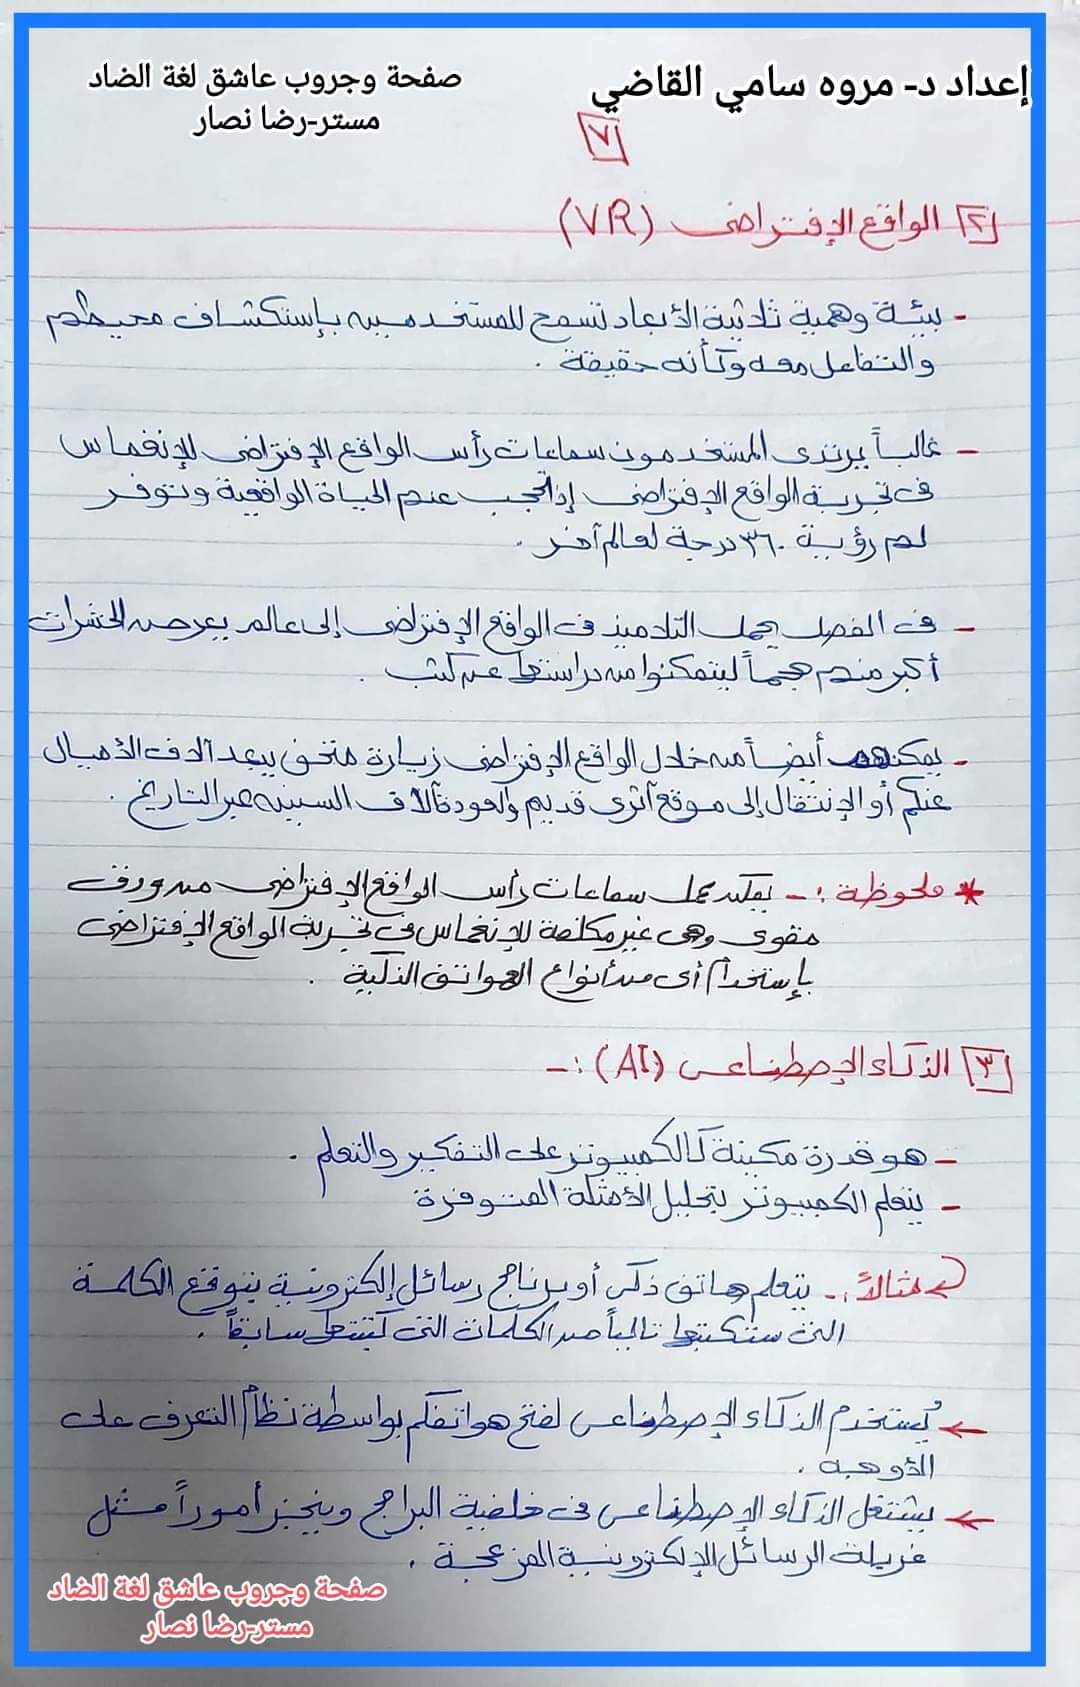 إعداد د- مروه سامي القاضي
صفحة وجروب عاشق لغة الضاد
مستر-رضا نصار
٧
٢ الواقع الإفتراضى (VR)
- بيئة وهمية ثلاثية الأبعاد تسمح للمستخدمين بإستكشاف محيطهم
والتفاعل معه وكأنه حقيقة .
- غالباً يرتدى المستخدمون سماعات رأس الواقع الإفتراضى للإنغماس
فى تجربة الواقع الإفتراضى إذ تحجب عنهم الحياة الواقعية وتوفر
لهم رؤية ٣٦٠ درجة لعالم آخر .
- فى الفصل يحمل التلاميذ فى الواقع الإفتراضى إلى عالم يعرض الحشرات
أكبر منهم حجماً ليتمكنوا من دراستها عن كثب .
- يمكنهم أيضاً من خلال الواقع الإفتراضى زيارة متحف يبعد آلاف الأميال
عنكم أو الإنتقال إلى موقع أثرى قديم والعودة آلاف السنين عبر التاريخ .
* ملحوظة :- يمكن عمل سماعات رأس الواقع الإفتراضى من ورق
مقوى وهى غير مكلفة للإنغماس فى تجربة الواقع الإفتراضى
بإستخدام أى من أنواع الهواتف الذكية .
٣ الذكاء الإصطناعى (AI) :-
- هو قدرة مكينة كالكمبيوتر على التفكير والتعلم .
- يتعلم الكمبيوتر بتحليل الأمثلة المتوفرة
مثالاً :- يتعلم هاتف ذكى أو برنامج رسائل إلكترونية يتوقع الكلمة
التى ستكتبها تالياً من الكلمات التى كتبتها سابقاً .
← يُستخدم الذكاء الإصطناعى لفتح هواتفكم بواسطة نظام التعرف على
الأوجه .
← يشتغل الذكاء الإصطناعى فى خلفية البرامج وينجز أموراً مثل
غربلة الرسائل الإلكترونية المزعجة .
صفحة وجروب عاشق لغة الضاد
مستر-رضا نصار